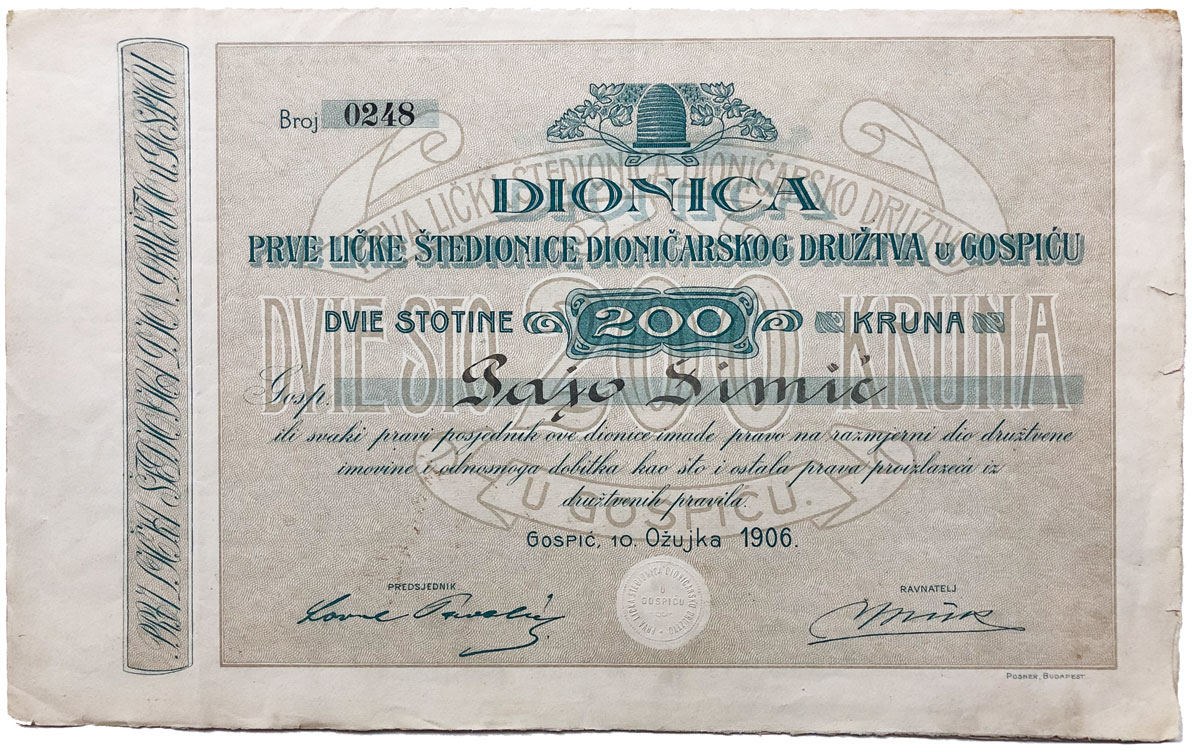 PRVA LIČKA ŠTEDIONICA DIONIČ. DRUŽTVO U GOSPIĆU
Broj 0248
PRVA LIČKA ŠTEDIONICA DIONIČARSKO DRUŽTVO
DIONICA
PRVE LIČKE ŠTEDIONICE DIONIČARSKOG DRUŽTVA U GOSPIĆU
DVIE STO 200 KRUNA
DVIE STOTINE 200 KRUNA
Gosp. Pajo Šimić
ili svaki pravi posjednik ove dionice imade pravo na razmjerni dio družtvene
imovine i odnosnoga dobitka kao što i ostala prava proizlazeća iz
družtvenih pravila.
U GOSPIĆU.
GOSPIĆ, 10. Ožujka 1906.
PREDSJEDNIK
RAVNATELJ
PRVA LIČKA ŠTEDIONICA DIONIČARSKO DRUŽTVO
U
GOSPIĆU
POSNER, BUDAPEST